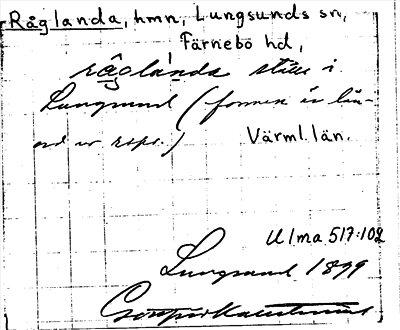 Råglanda, hmn, Lungsunds sn,
Färnebo hd,
råglanda ställe i
Lungsund (formen är lån-
ord av rspr.) Värml. län.
Ulma 517:102
Lungsund 1899